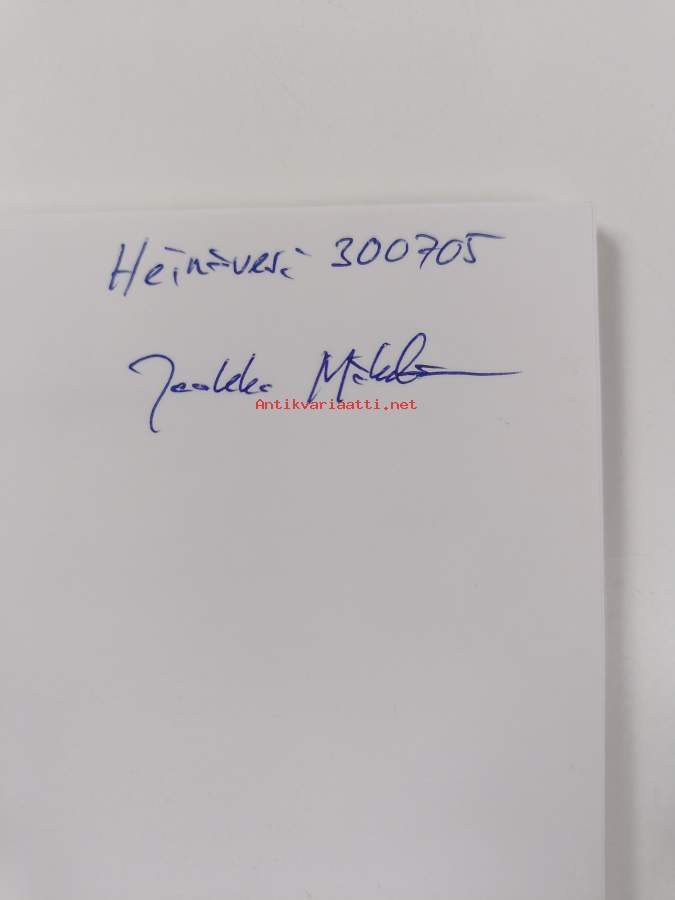 Heinävesi 300705
Jaakko
Antikvariaatti.net